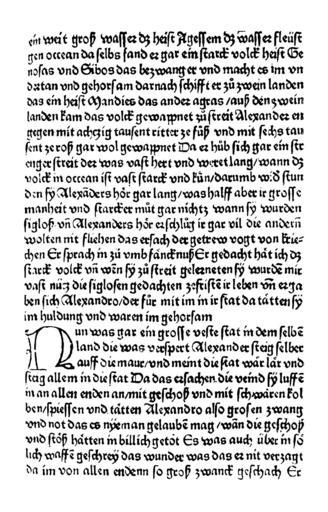 ein weit groß wasser dz heist Agessem dz wasser fleüst
gen occean da selbs fand er gar ein starck volck heist Ge
nosas vnd Sibos das bezwang er vnd macht es im vn
dertan vnd gehorsam darnach schifft er zů zwein landen
das ein heist Mandies das ander agras / auß den zwein
landen kam das volck gewappnet zů streit Alexander en
gegen mit achczig tausent ritter ze fůß vnd mit sechs tau
sent ze roß gar wol gewappnet Da er hůb sich gar ein str
enger streit der was vast hert vnd weret lang / wann dz
volck in occean ist vast starck vnd kün / darumb wid stun
den sy Alexāders hör gar lang / was half aber ir grosse
manheit vnd starcker můt gar nichtz wann sy wurden
sigloß vn̄ Alexanders hör erschlůg ir gar vil die andern
wolten mit fliehen das ersach der getrew vogt von krie-
chen Er sprach in zů vmb fäncknuß Er gedacht hät ich dz
starck volck vn̄ wēn sy zů streit gelerneten sy wurdē mir
vast nücz die siglosen gedachten ze fristē ir leben vn̄ erga
ben sich Alexandro / der für mit im in ir stat da tätten sy
im huldung vnd waren im gehorsam
Nun was gar ein grosse veste stat in dem selbē
land die was verspert Alexander steig selber
auff die maur / vnd meint die stat wär lär vnd
steig allein in die stat Da das ersachen die veind sy luffē
in an allen enden an / mit geschoß vnd mit schwären kol
ben / spiessen vnd tätten Alexandro also grosen zwang
vnd not das es nyeman gelauben mag / wān die geschoß
vnd stöß hätten in billich getöt Es was auch über in so
lich waffen geschrey das wunder was das er nit verzagt
da im von allen enden so groß zwanck geschach Er